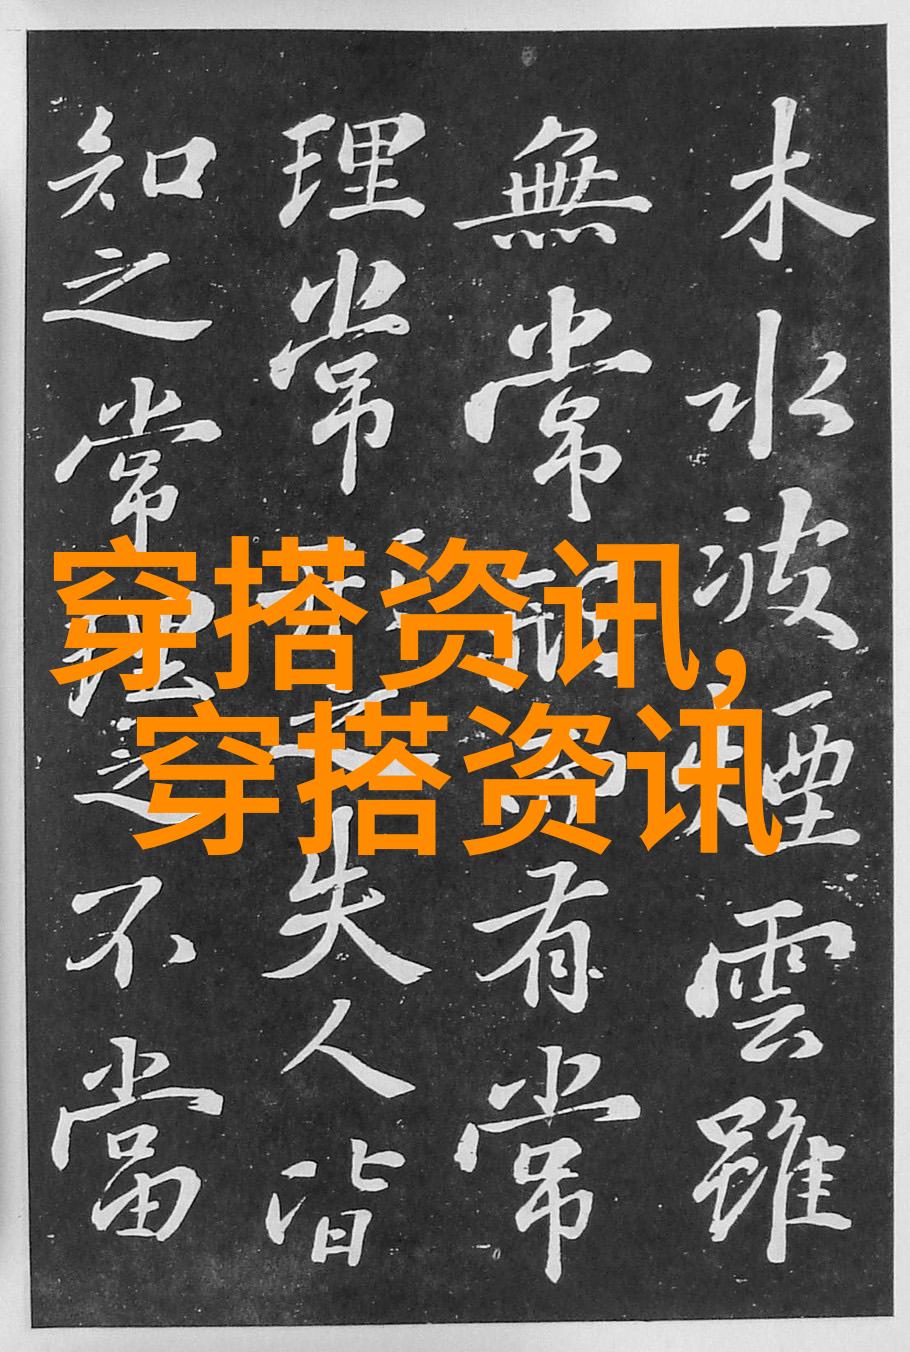 木水波煙雲雖
無常有常
理常之失人皆
知之常理之不當
穿搭资讯,
穿搭资讯